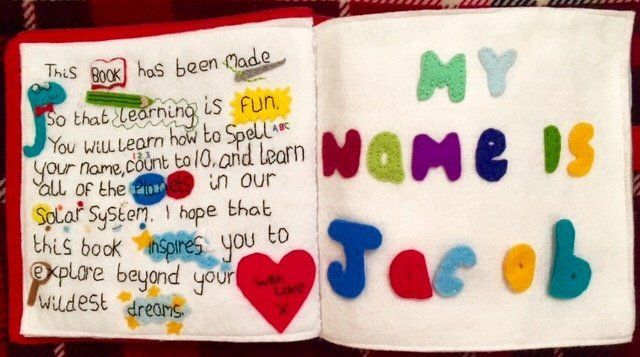 This BOOK has been made
So that learning is FUN.
ABC
You will learn how to spell
123
your name, count to 10, and learn
all of the Planets in our
Solar System. I hope that
this book inspires you to
explore beyond your
wildest dreams.
With
Love
x
MY
NaMe IS
Jacob